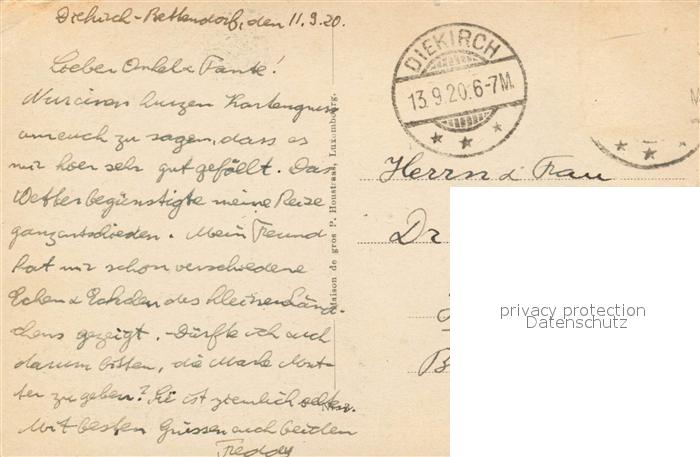 Diekirch-Bettendorf, den 11.9.20.
Lieber Onkel & Tante!
Nur einen kurzen Kartengruss
um euch zu sagen, dass es
mir hier sehr gut gefällt. Das
Wetter begünstigte meine Reise
ganz entschieden. Mein Freund
hat mir schon verschiedene
Ecken & Eckchen des kleinen Länd-
chens gezeigt. - Dürfte ich euch
darum bitten, die Marke Mut-
ter zu geben? Sie ist ziemlich selten.
Mit besten Grüssen euch beiden
Freddy
Maison de gros P. Houstraas, Luxembourg.
DIEKIRCH
13.9.20.6-7M.
M
Herrn & Frau
Dr
B
privacy protection
Datenschutz